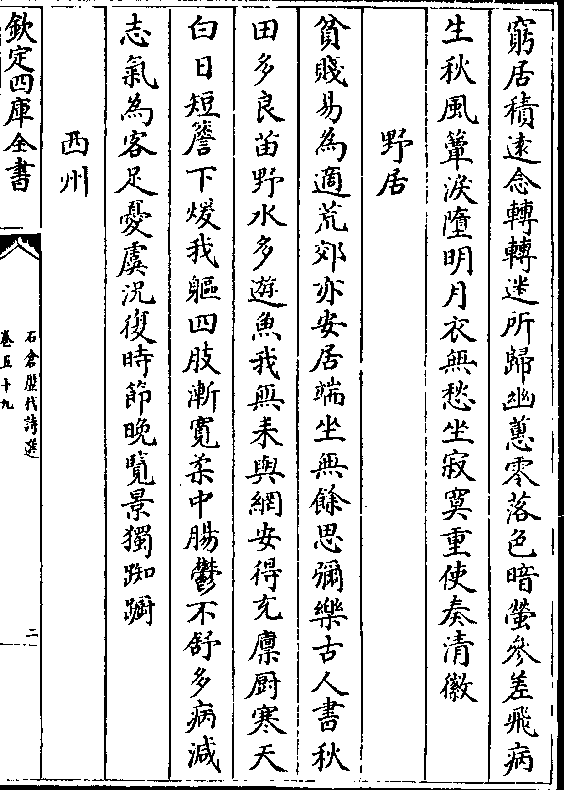 窮居積遠念轉轉迷所歸幽蕙零落色暗螢參差飛病
生秋風簟淚墮明月衣無愁坐寂寞重使奏清徽
野居
貧賤易為適荒郊亦安居端坐無餘思彌樂古人書秋
田多良苗野水多遊魚我無耒與網安得充廪厨寒天
白日短簷下煖我軀四肢漸寛柔中腸鬱不舒多病減
志氣為客足憂虞況復時節晚覽景獨踟蹰
西州
欽定四庫全書
石倉歷代詩選
卷五十九
二